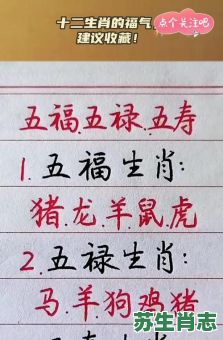 十二生肖的福气
建议收藏!
点个关注吧
五福五禄五寿
1.五福生肖:
猪龙羊鼠虎
2.五禄生肖:
马羊狗鸡猪
苏生肖志